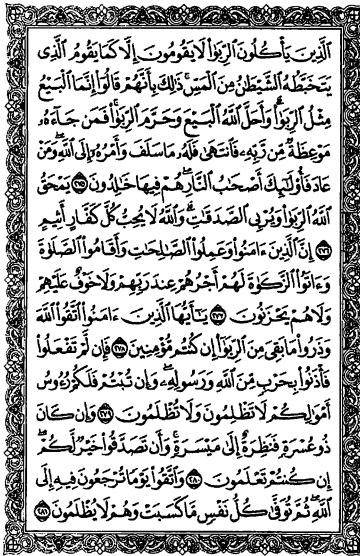 ٱلَّذِينَ يَأْكُلُونَ ٱلرِّبَوٰا۟ لَا يَقُومُونَ إِلَّا كَمَا يَقُومُ ٱلَّذِى
يَتَخَبَّطُهُ ٱلشَّيْطَٰنُ مِنَ ٱلْمَسِّ ۚ ذَٰلِكَ بِأَنَّهُمْ قَالُوٓا۟ إِنَّمَا ٱلْبَيْعُ
مِثْلُ ٱلرِّبَوٰا۟ ۗ وَأَحَلَّ ٱللَّهُ ٱلْبَيْعَ وَحَرَّمَ ٱلرِّبَوٰا۟ ۚ فَمَن جَآءَهُۥ
مَوْعِظَةٌ مِّن رَّبِّهِۦ فَٱنتَهَىٰ فَلَهُۥ مَا سَلَفَ وَأَمْرُهُۥٓ إِلَى ٱللَّهِ ۖ وَمَنْ
عَادَ فَأُو۟لَٰٓئِكَ أَصْحَٰبُ ٱلنَّارِ ۖ هُمْ فِيهَا خَٰلِدُونَ ٢٧٥ يَمْحَقُ
ٱللَّهُ ٱلرِّبَوٰا۟ وَيُرْبِى ٱلصَّدَقَٰتِ ۗ وَٱللَّهُ لَا يُحِبُّ كُلَّ كَفَّارٍ أَثِيمٍ
٢٧٦ إِنَّ ٱلَّذِينَ ءَامَنُوا۟ وَعَمِلُوا۟ ٱلصَّٰلِحَٰتِ وَأَقَامُوا۟ ٱلصَّلَوٰةَ
وَءَاتَوُا۟ ٱلزَّكَوٰةَ لَهُمْ أَجْرُهُمْ عِندَ رَبِّهِمْ وَلَا خَوْفٌ عَلَيْهِمْ
وَلَا هُمْ يَحْزَنُونَ ٢٧٧ يَٰٓأَيُّهَا ٱلَّذِينَ ءَامَنُوا۟ ٱتَّقُوا۟ ٱللَّهَ
وَذَرُوا۟ مَا بَقِىَ مِنَ ٱلرِّبَوٰٓا۟ إِن كُنتُم مُّؤْمِنِينَ ٢٧٨ فَإِن لَّمْ تَفْعَلُوا۟
فَأْذَنُوا۟ بِحَرْبٍ مِّنَ ٱللَّهِ وَرَسُولِهِۦ ۖ وَإِن تُبْتُمْ فَلَكُمْ رُءُوسُ
أَمْوَٰلِكُمْ لَا تَظْلِمُونَ وَلَا تُظْلَمُونَ ٢٧٩ وَإِن كَانَ
ذُو عُسْرَةٍ فَنَظِرَةٌ إِلَىٰ مَيْسَرَةٍ ۚ وَأَن تَصَدَّقُوا۟ خَيْرٌ لَّكُمْ ۖ
إِن كُنتُمْ تَعْلَمُونَ ٢٨٠ وَٱتَّقُوا۟ يَوْمًا تُرْجَعُونَ فِيهِ إِلَى
ٱللَّهِ ۖ ثُمَّ تُوَفَّىٰ كُلُّ نَفْسٍ مَّا كَسَبَتْ وَهُمْ لَا يُظْلَمُونَ ٢٨١